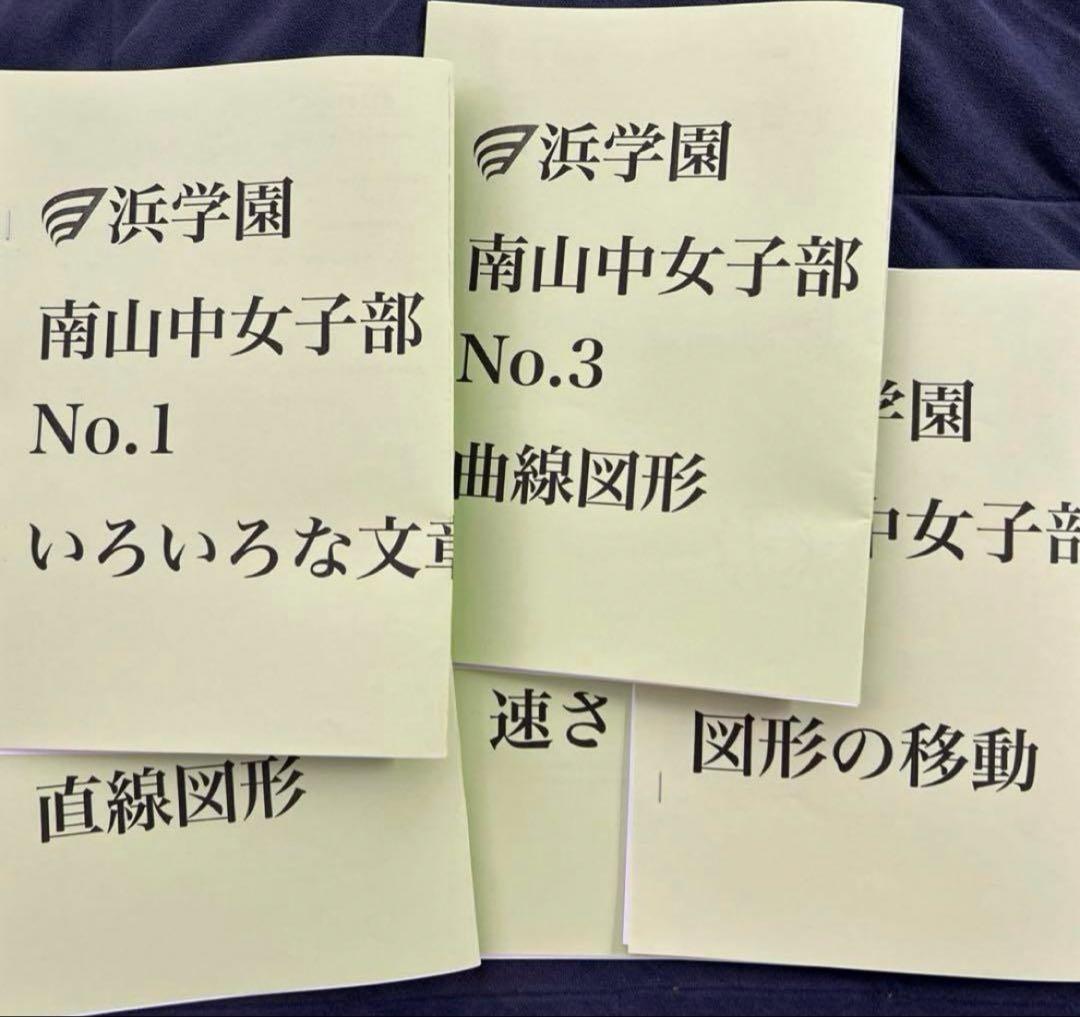 浜学園
南山中女子部
No.1
いろいろな文章
浜学園
南山中女子部
No.3
曲線図形
学園
中女子部
図形の移動
直線図形
速さ